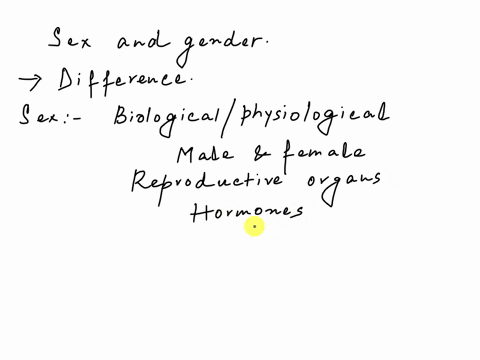 Sex and gender.
→ Difference.
Sex:- Biological/physiological
Male & female
Reproductive organs
Hormones